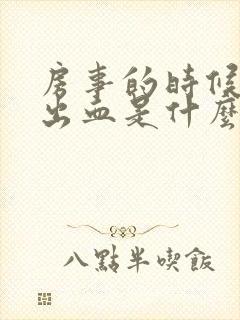 房事的時候
出血是什麼
八點半喫飯